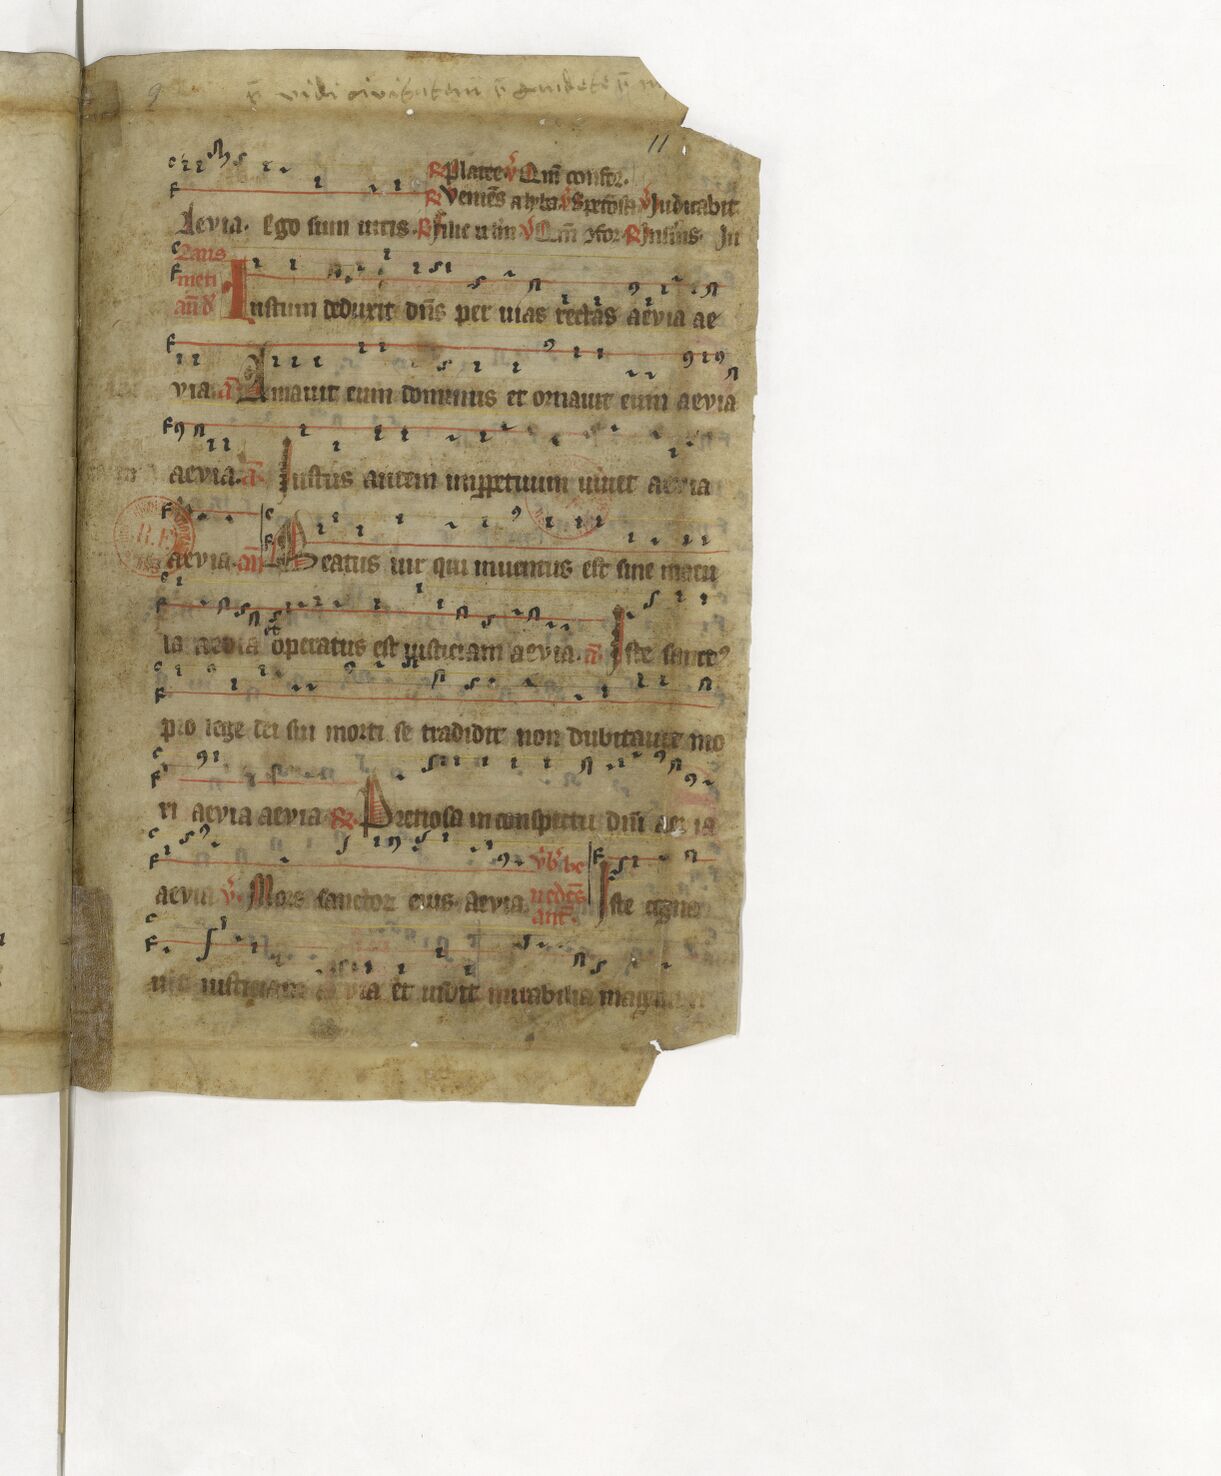 vidi civitatem gaudete
11
R Platee V Qm̄ confor.
R Veniēs a lyba V Speciosa V Judicabit
Aevia. Ego sum vitis. R Filie ierlm̄ V Qm̄ ɔfor. R Justus. Ju
Laus
meti
añ ð
Iustum deduxit dn̄s per vias rectas aevia ae
via. a Amavit eum dominus et ornavit eum aevia
aevia. a. Iustus autem imppetuum vivet aevia
aevia. añ Beatus vir qui inventus est sine macu
la aevia operatus est iusticiam aevia. a Iste sanctꝰ
pro lege dei sui morti se tradidit non dubitavit mo
ri aevia aevia R. Preciosa in conspectu dn̄i aevia
aevia V. Mors sanctoꝝ eius. aevia.
ant. Iste cogno
vit iusticiam aevia et vidit mirabilia magna
B.R.